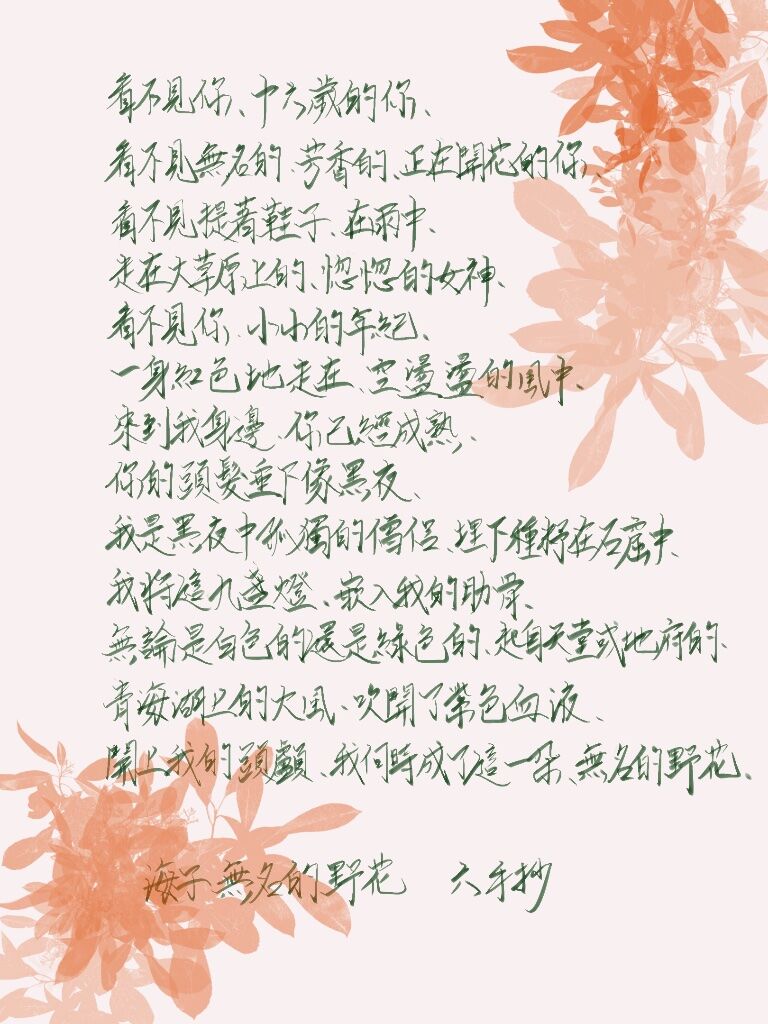 看不見你、十六歲的你、
看不見無名的、芳香的、正在開花的你、
看不見提著鞋子、在雨中、
走在大草原上的、惚惚的女神、
看不見你、小小的年紀、
一身紅色地走在、空盪盪的風中、
來到我身邊、你已經成熟、
你的頭髮垂下像黑夜、
我是黑夜中孤獨的僧侶、埋下種籽在石窟中、
我將這九盞燈、嵌入我的肋骨、
無論是白色的還是綠色的、起自天堂或地府的、
青海湖上的大風、吹開了紫色血液、
開上我的頭顱、我何時成了這一朵、無名的野花、
海子 無名的野花 六手抄